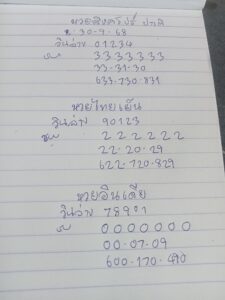 หวยสิงคโปร์ ปกติ
30-9-68
วินล่าง 01234
3333333
33-31-30
633-730-831
หวยไทยเย็น
วินล่าง 90123
2222222
22-20-29
622-720-829
หวยอินเดีย
วินล่าง 78901
0000000
00-07-09
600-170-490